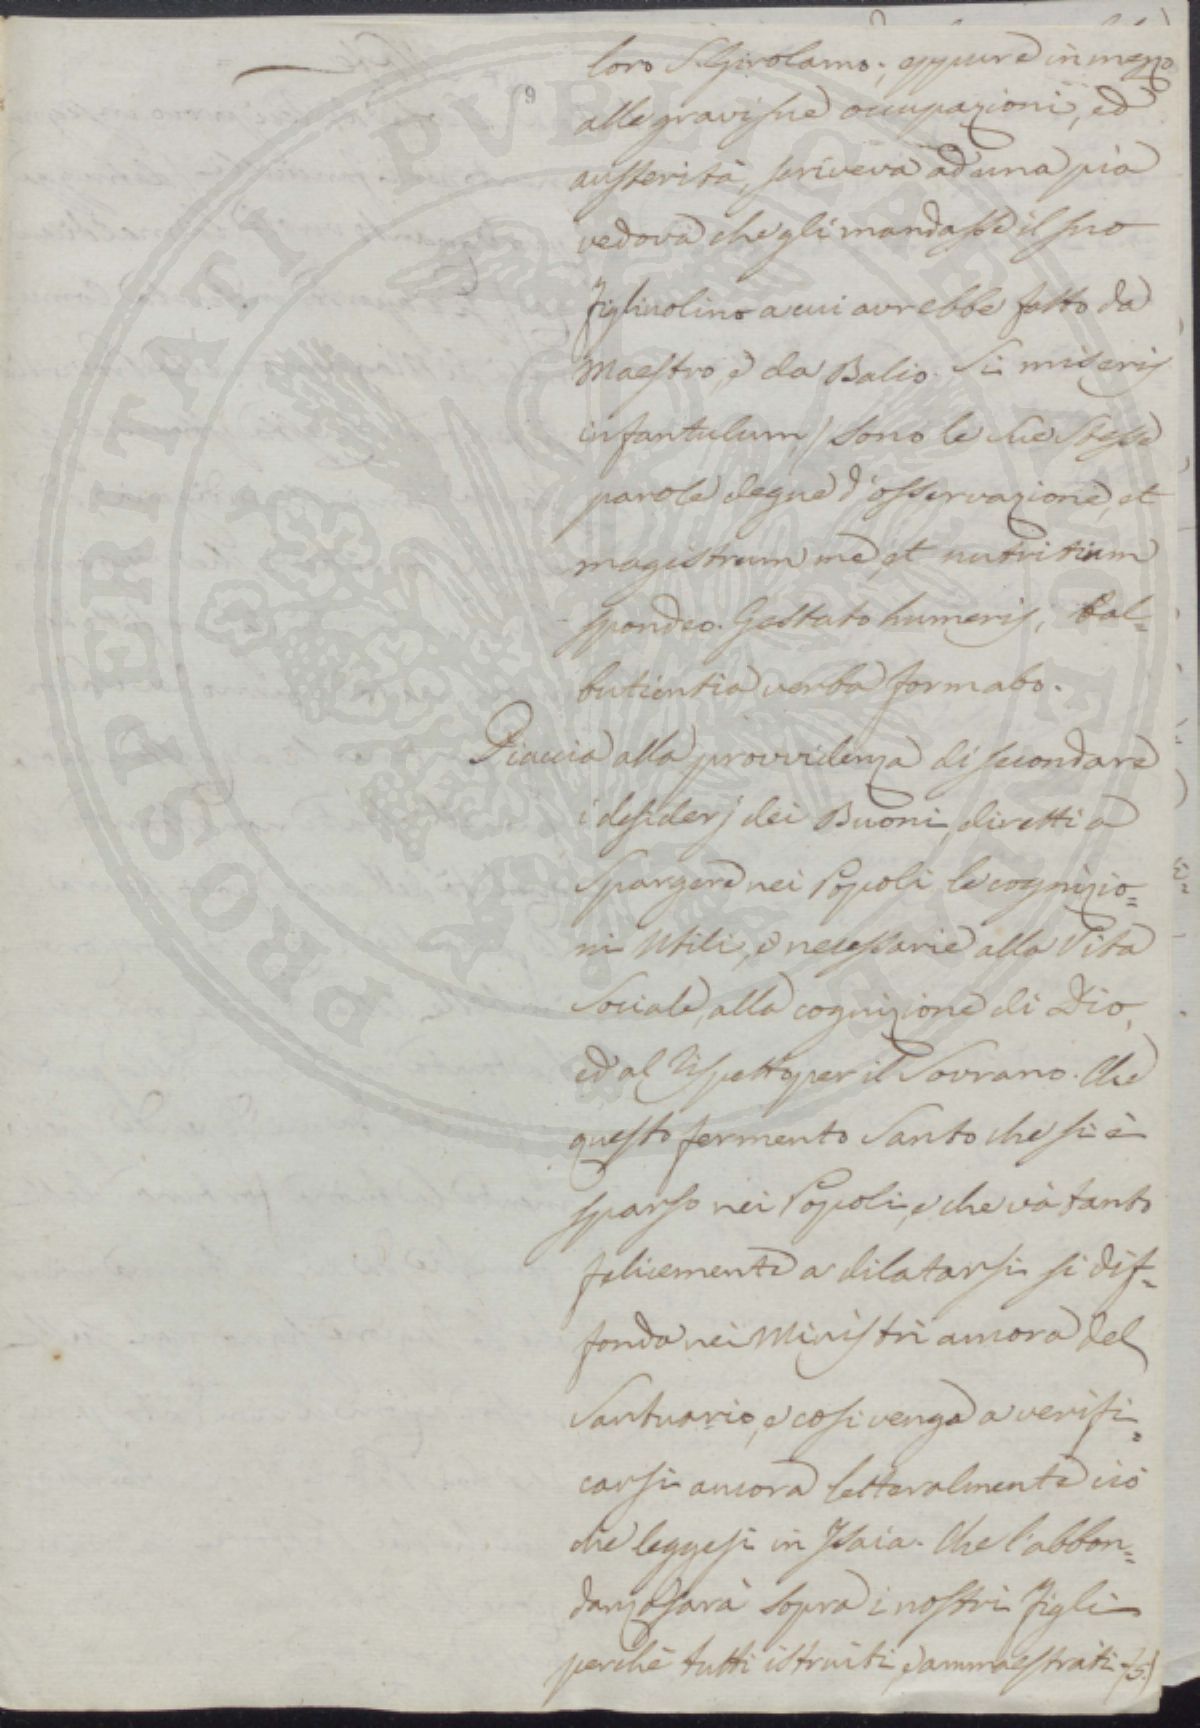 loro S. Girolamo; eppure in mezzo
alle gravissime occupazioni, ed
austerità, scriveva ad una pia
vedova che gli mandasse il suo
figliuolino a cui avrebbe fatto da
Maestro, e da Balio. Si miseris
infantulum, / sono le sue stesse
parole degne d'osservazione, et
magistrum me, et nutritium
spondeo. Gestato humeris, bal=
butientia verba formabo.
Piaccia alla provvidenza di secondare
i desiderj dei Buoni, diretti a
Spargere nei Popoli le cognizio=
ni Utili, e necessarie alla Vita
Sociale, alla cognizione di Dio,
ed al Rispetto per il Sovrano. Che
questo fermento Santo che si è
sparso nei Popoli, e che và tanto
felicemente a dilatarsi si dif=
fonda nei Ministri ancora del
Santuario, e così venga a verifi=
carsi ancora letteralmente ciò
che leggesi in Isaia. Che l'abbon=
danza sarà sopra i nostri figli
perchè tutti istruiti, e ammaestrati (5.)
9
PROSPERITATI PVBLICAE AVGENDAE